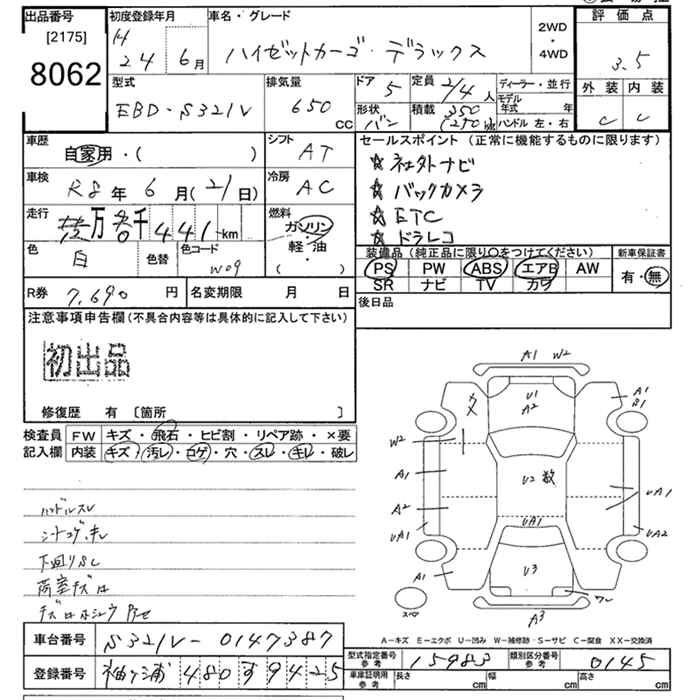 出品番号
[2175]
8062
初度登録年月
H
24 6月
車名・グレード
ハイゼットカーゴ・デラックス
2WD
・
4WD
評価点
3.5
外装 内装
C C
型式
EBD-S321V
排気量
650
CC
ドア 5
定員 2/4人
形状 バン
積載 350
(250)kg
ディーラー・並行
モデル年式 年
ハンドル 左・右
車歴
自家用・( )
シフト
AT
車検
R8年 6月(21日)
冷房
AC
走行
万 千 441km
燃料
ガソリン
・
軽油
( )
色
白
色替
色コード
W09
R券 7,690円
名変期限 月 日
セールスポイント(正常に機能するものに限ります)
☆社外ナビ
☆バックカメラ
☆ETC
☆ドラレコ
装備品(純正品に限り○をつけてください)
PS PW ABS エアB AW
SR ナビ TV カワ
新車保証書
有・無
後日品
注意事項申告欄(不具合内容等は具体的に記入して下さい)
初出品
修復歴 有〔箇所 〕
検査員 FW キズ・飛石・ヒビ割・リペア跡・×要
記入欄 内装 キズ・汚レ・コゲ・穴・スレ・キレ・破レ
ハンドルスレ
シートコゲ・キレ
下回りSC
荷室キズ
A1 W2
U1
A2
A1
B1
W2
A1
U2 数
UA1
A2
UA1
UA1
UA2
A1
U3
スペア
A3
A-キズ E-エクボ U-凹み W-補修跡 S-サビ C-腐食 XX-交換済
車台番号 S321V-0147387
登録番号 袖ヶ浦 480 す 9425
型式指定番号 参考 15983
類別区分番号 参考 0145
車庫証明用 参考 長さ cm 幅 cm 高さ cm